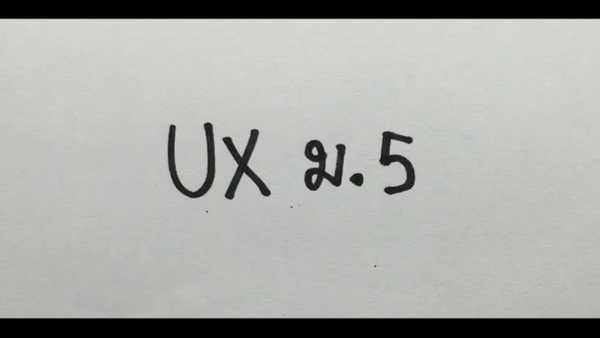 UX ม.5